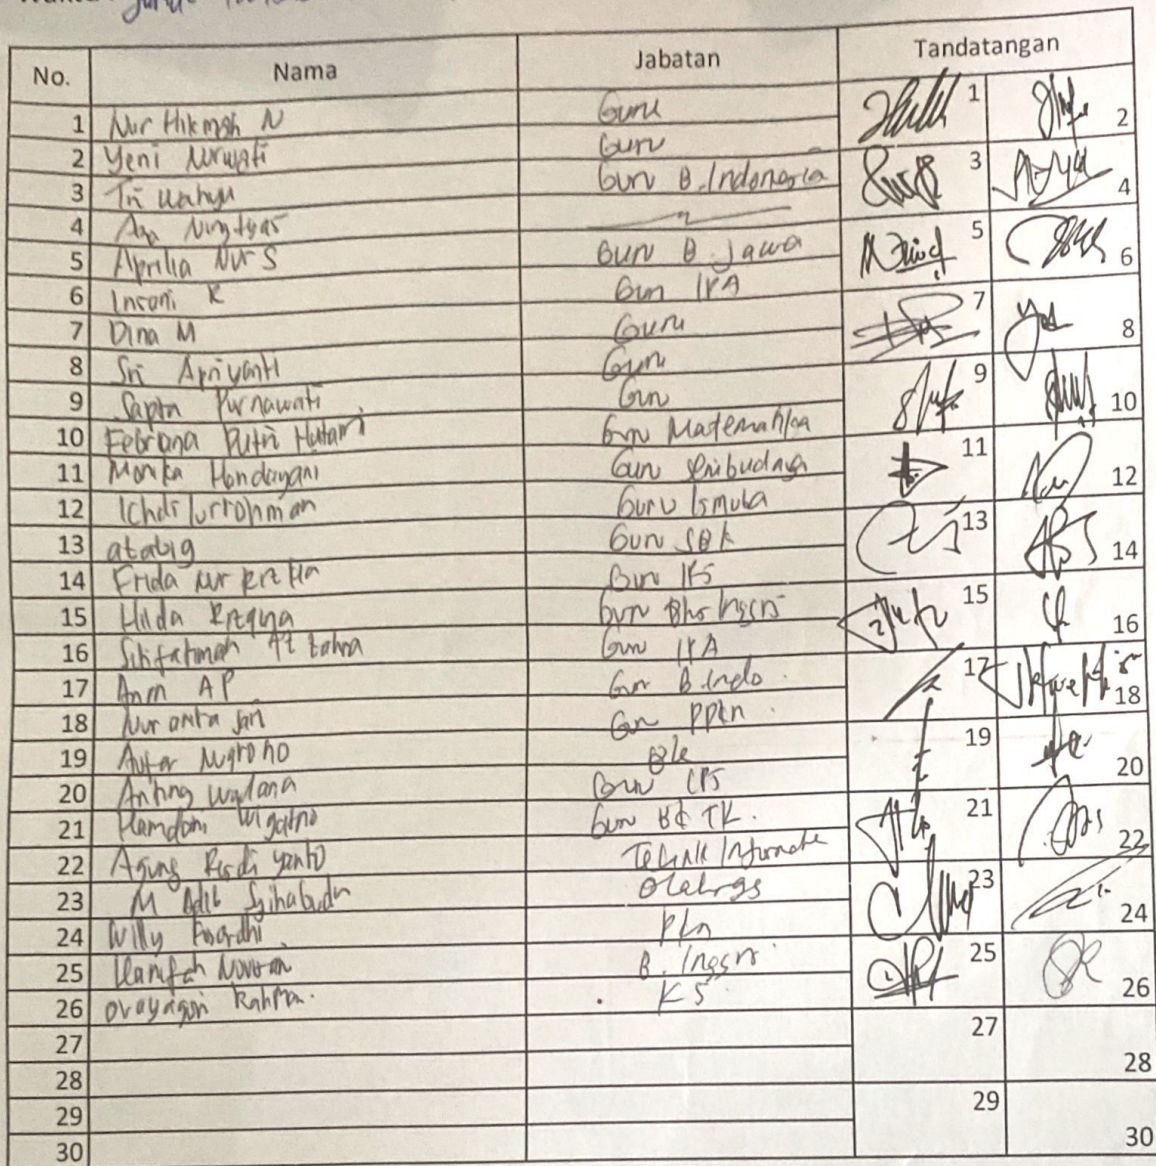 No. Nama Jabatan Tandatangan
1 Nur Hikmah N Guru 1 2
2 Yeni Nurwati Guru
3 Tri Wahyu Guru B. Indonesia 3 4
4 Ningtyas
5 Aprilia Nur S Guru B. Jawa 5 6
6 Insani K Guru IPA
7 Dina M Guru 7 8
8 Sri Apriyanti Guru
9 Sapta Purnawati Guru 9 10
10 Febriana Putri Hutami Guru Matematika
11 Monika Handayani Guru Senibudaya 11 12
12 Guru Ismuba
13 atabig Guru 13 14
14 Frida Nur Guru IPS
15 Hilda Guru Bhs Inggris 15 16
16 Siti fatimah Az zahra Guru IPA
17 AP Guru B. Indo. 17 18
18 Nur anita sari Guru PPKn
19 Nugroho 19 20
20 Guru IPS
21 Hamdani Guru TK. 21 22
22 Agung Teknik Informatika
23 M Adib Syihabudin Olahraga 23 24
24 Willy PKn
25 Hanifah B. Inggris 25 26
26 Rahma. KS
27 27 28
28
29 29 30
30